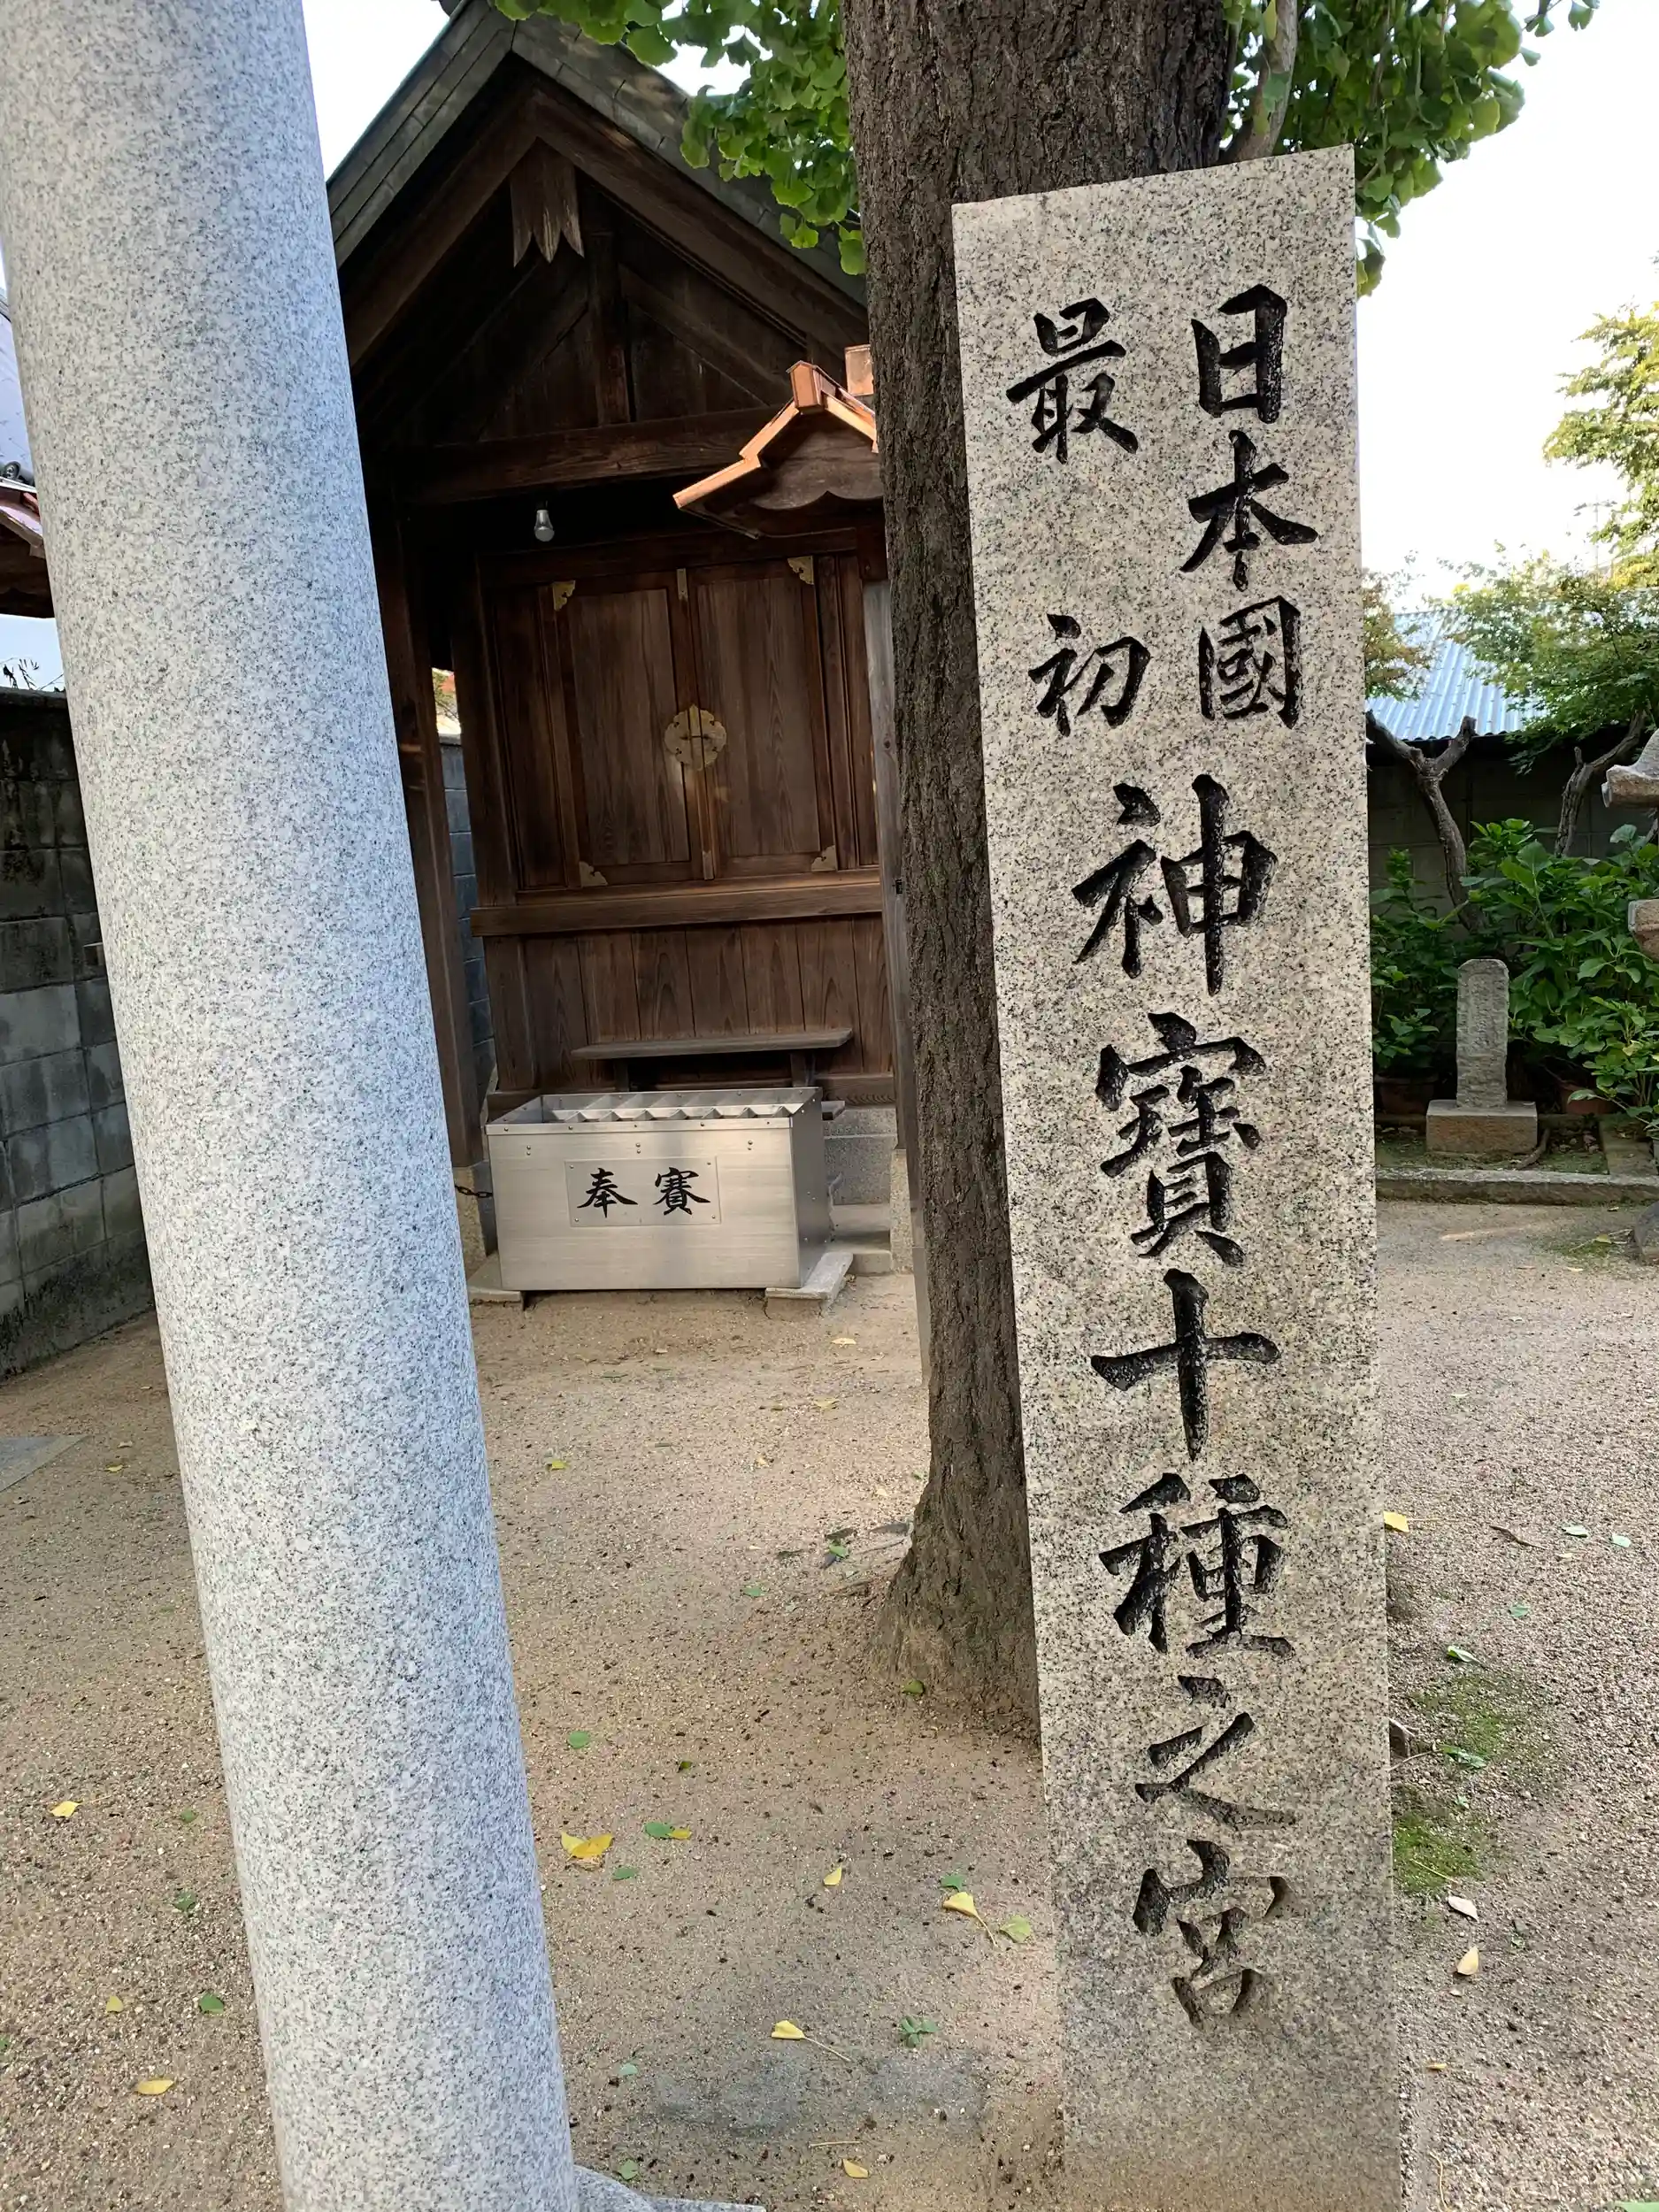 日本國
最初
神寶十種之宮
奉賽